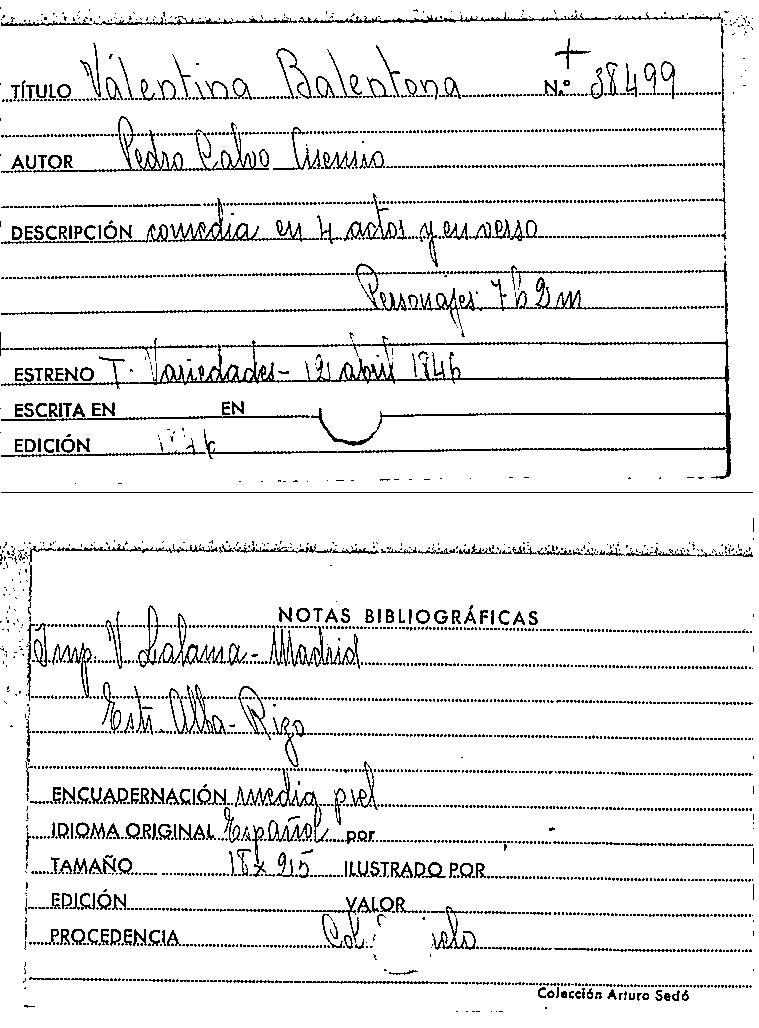 TÍTULO Valentina Balentona N.º 38499
AUTOR Pedro Calvo Asensio
DESCRIPCIÓN comedia en 4 actos y en verso
Personajes: 7 h 2 m
ESTRENO T. Variedades - 12 abril 1846
ESCRITA EN EN
EDICIÓN 1846
NOTAS BIBLIOGRÁFICAS
Imp. V Lalama - Madrid
Estr. Alba - Rizo
ENCUADERNACIÓN media piel
IDIOMA ORIGINAL Español por
TAMAÑO 18 x 9,5 ILUSTRADO POR
EDICIÓN VALOR
PROCEDENCIA Col.
Colección Arturo Sedó